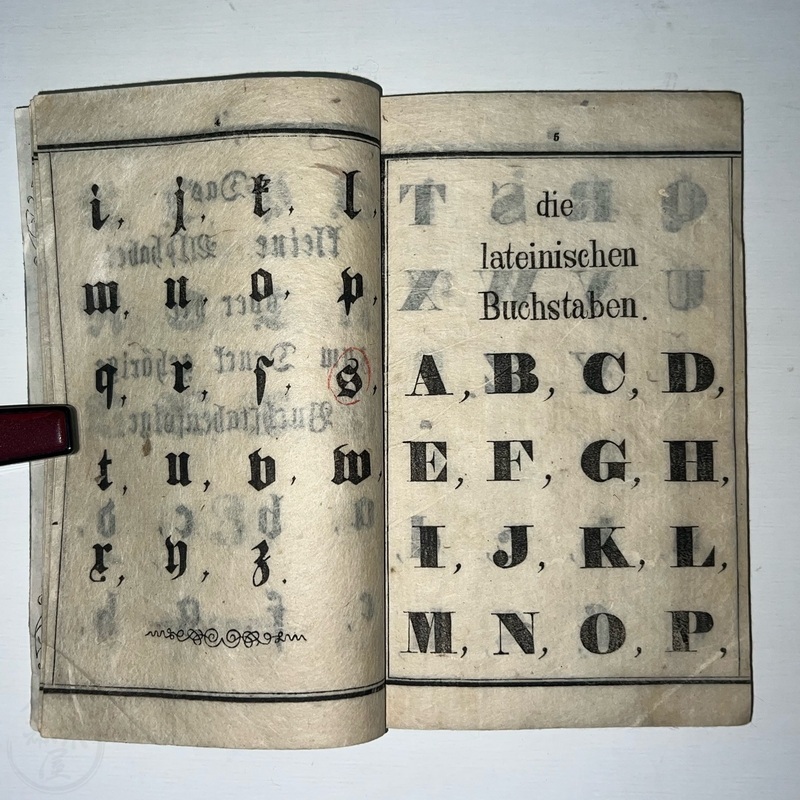 i, j, k, l,
m, n, o, p,
q, r, ſ, s,
t, u, v, w
x, y, z.
5
die
lateinischen
Buchstaben.
A, B, C, D,
E, F, G, H,
I, J, K, L,
M, N, O, P,